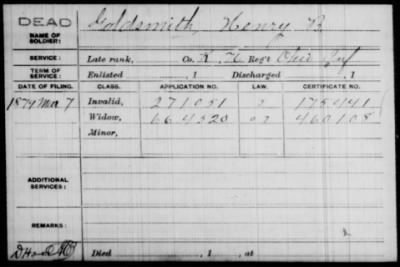 DEAD
NAME OF SOLDIER: Goldsmith, Henry B.
SERVICE: Late rank, Co. K Reg't Ohio Inf
TERM OF SERVICE: Enlisted , 1 Discharged , 1
DATE OF FILING. CLASS. APPLICATION NO. LAW. CERTIFICATE NO.
1879 Mar 7 Invalid, 271051 175441
Widow, 664520 460108
Minor,
ADDITIONAL SERVICES:
REMARKS:
Died , 1 , at